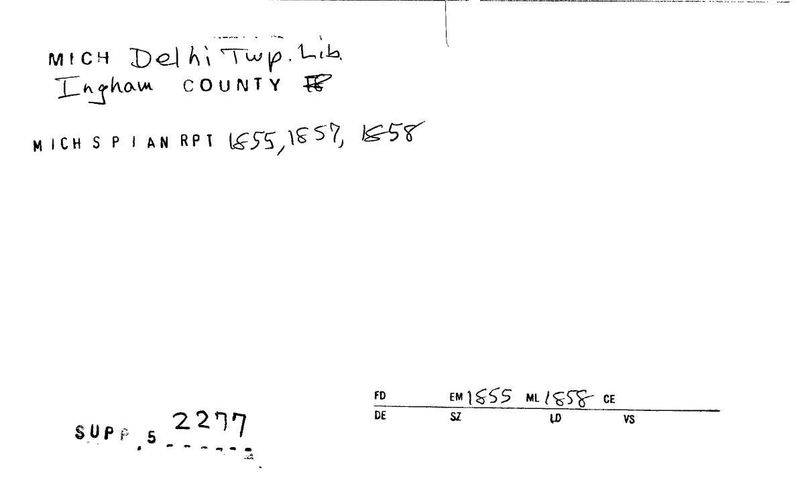 MICH Delhi Twp. Lib.
Ingham COUNTY
MICH S P I AN RPT 1855, 1857, 1858
FD EM 1855 ML 1858 CE
DE SZ LD VS
SUPP. 5 2277